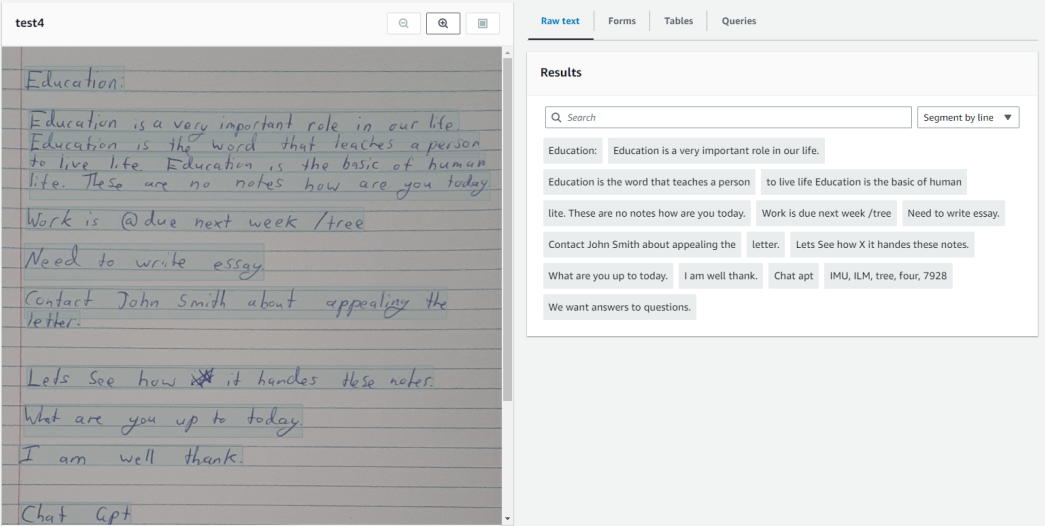 test4
Education:
Education is a very important role in our life.
Education is the word that teaches a person
to live life. Education is the basic of human
life. These are no notes how are you today
Work is @ due next week /tree
Need to write essay.
Contact John Smith about appealing the
letter.
Lets See how it handes these notes.
What are you up to today.
I am well thank.
Chat Gpt
Raw text Forms Tables Queries
Results
Search Segment by line
Education: Education is a very important role in our life.
Education is the word that teaches a person to live life Education is the basic of human
lite. These are no notes how are you today. Work is due next week /tree Need to write essay.
Contact John Smith about appealing the letter. Lets See how X it handes these notes.
What are you up to today. I am well thank. Chat apt IMU, ILM, tree, four, 7928
We want answers to questions.